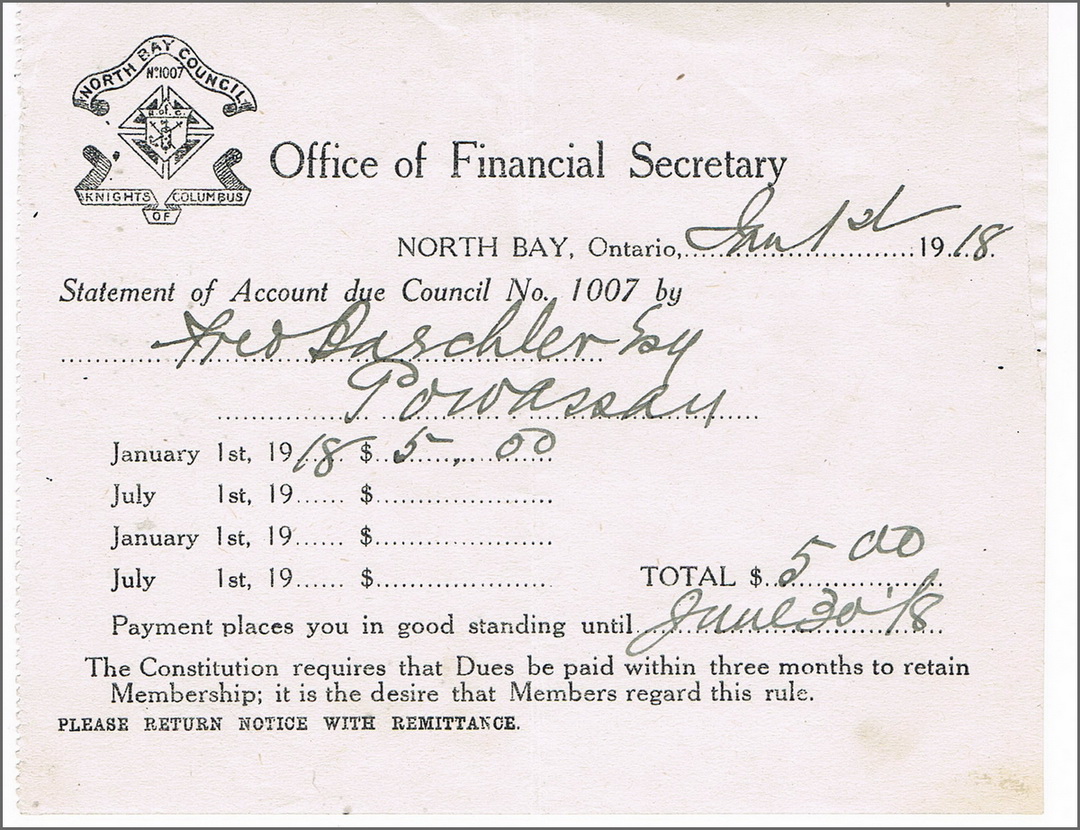 NORTH BAY COUNCIL
Nº 1007
K. of C.
KNIGHTS OF COLUMBUS
Office of Financial Secretary
NORTH BAY, Ontario, Jan 1st 1918
Statement of Account due Council No. 1007 by
Fred Daschler Esq
Powassan
January 1st, 1918 $ 5.00
July 1st, 19...... $
January 1st, 19...... $
July 1st, 19...... $
TOTAL $ 5 00
Payment places you in good standing until June 30 '18
The Constitution requires that Dues be paid within three months to retain
Membership; it is the desire that Members regard this rule.
PLEASE RETURN NOTICE WITH REMITTANCE.